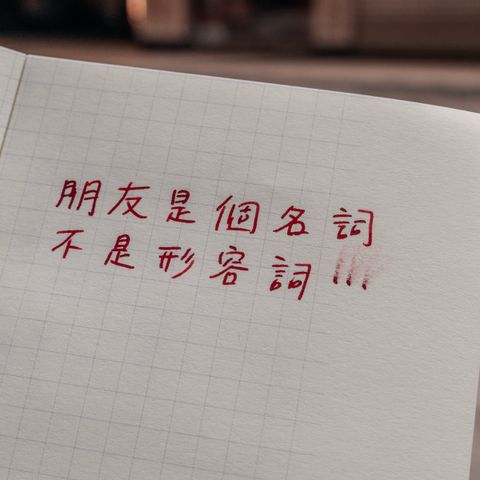 朋友是個名詞
不是形容詞!!!